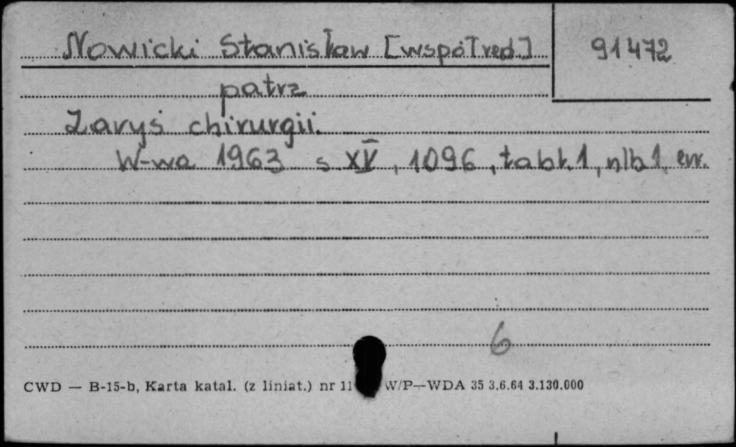 Nowicki Stanisław [współred]
91472
patrz
Zarys chirurgii.
W-wa 1963 s XV, 1096, tabl.1, nlb 1, err.
6
CWD — B-15-b, Karta katal. (z liniat.) nr 11 W/P—WDA 35 3.6.64 3.130.000